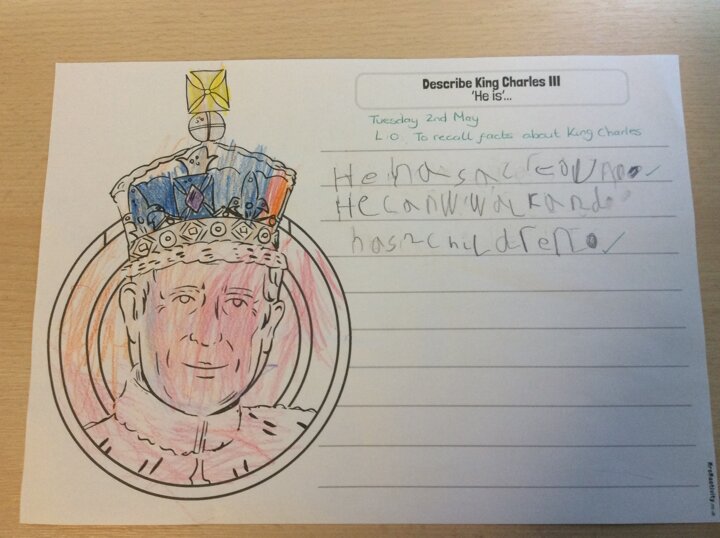 Describe King Charles III
'He is'...
Tuesday 2nd May
L.O. To recall facts about King Charles
He has a
He can walk and
has 2 children